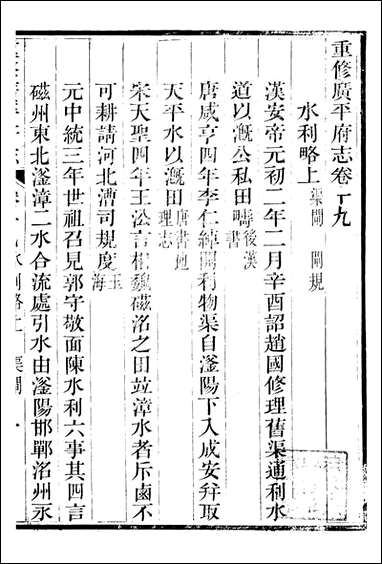 重修廣平府志卷十九
水利略上 渠閘 閘規
漢安帝元初二年二月辛酉詔趙國修理舊渠通利水
道以溉公私田疇後漢書
唐咸亨四年李仁綽開利物渠自滏陽下入成安幷取
天平水以溉田唐書地理志
宋天聖四年王沿言相魏磁洺之田竝漳水者斥鹵不
可耕請河北漕司規度玉海
元中統三年世祖召見郭守敬面陳水利六事其四言
磁州東北滏漳二水合流處引水由滏陽邯鄲洺州永